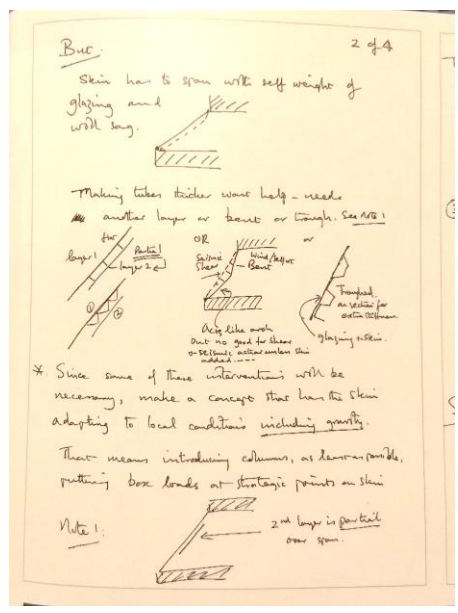 2 of 4
But.
Skin has to span with self weight of
glazing and
will sag.
Making tubes thicker wont help - needs
another layer or bent or trough. See note 1
flat
layer 1
Partial
layer 2
① ②
OR
Seismic
Shear
Wind/Self wt
Bent
Acts like arch
but no good for shear
or seismic action unless skin
added ----
or
Troughed
in section for
extra stiffness
glazing + skin.
* Since some of these interventions will be
necessary, make a concept that has the skin
adapting to local conditions including gravity.
That means introducing columns, as least as possible,
putting box loads at strategic points on skin
Note 1:
2nd layer is partial
over span.